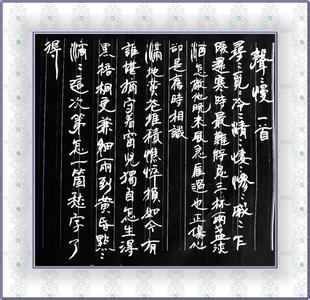 聲〻慢 一首
尋〻覓〻冷〻清〻凄〻慘〻戚〻乍
暖還寒時最難將息三杯兩盞淡
酒怎敵他晚來風急雁過也正傷心
却是舊時相識
滿地黃花堆積憔悴損如今有
誰堪摘守着窗兒獨自怎生得
黑梧桐更兼細雨到黃昏點〻
滴〻這次第怎一箇愁字了
得